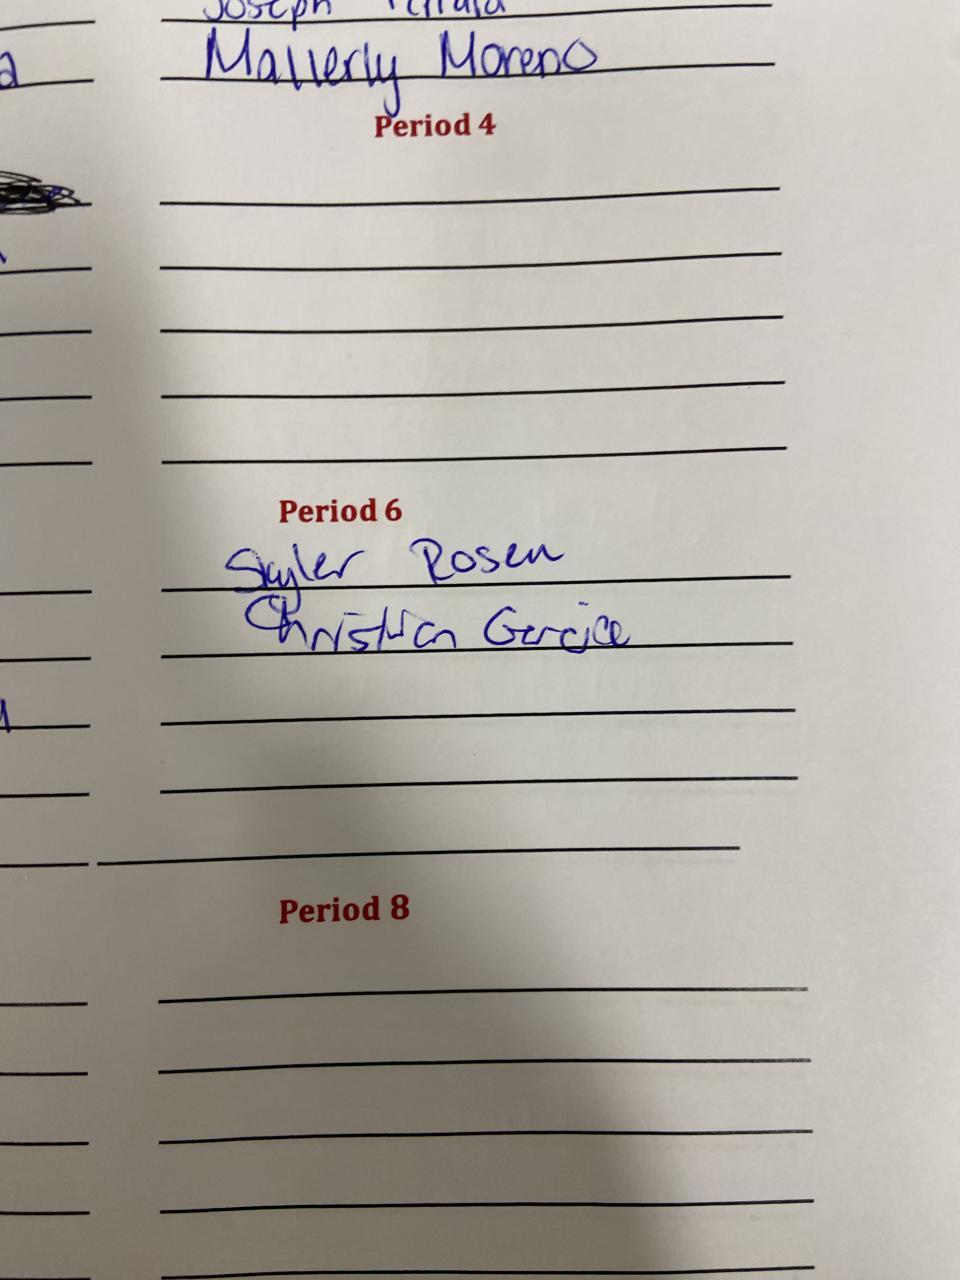 Joseph
Mallerly Moreno
Period 4
Period 6
Skyler Rosen
Christian Garcia
Period 8